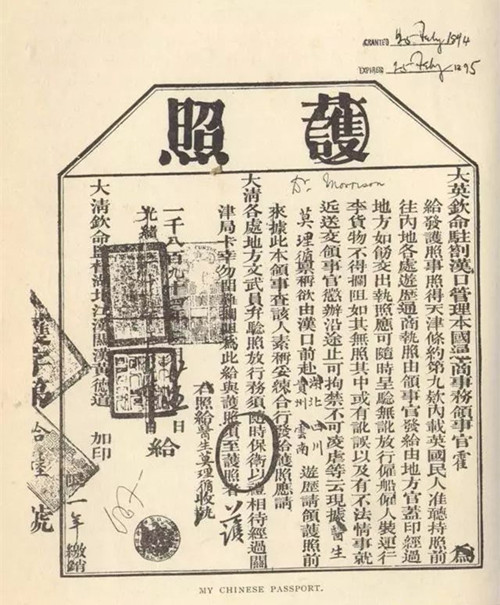 GRANTED 25 Feby 1894
EXPIRED 25 Feby 1895
護照
大英欽命駐劄漢口管理本國通商事務領事官霍 為
給發護照事照得天津條約第九欵內載英國民人准聽持照前
往內地各處遊歷通商執照由領事官發給由地方官蓋印經過
地方如飭交出執照應可隨時呈驗無訛放行僱船僱人裝運行
李貨物不得攔阻如其無照其中或有訛誤以及有不法情事就
近送交領事官懲辦沿途止可拘禁不可凌虐等云現據醫生
Dr. Morrison
莫理循稟稱欲由漢口前赴湖北四川貴州雲南 遊歷請領護照前
來據此本領事查該人素稱妥練合行發給護照應請
大清各處地方文武員弁驗照放行務須隨時保衛以禮相待經過關
津局卡幸勿留難攔阻為此給與護照須至護照者
護
右照給醫生莫理循收執
一千八百九十四年 日
光緒 日 給
大清欽命監督湖北江漢關漢黃德道 加印
限一年繳銷
護字第拾 號
MY CHINESE PASSPORT.